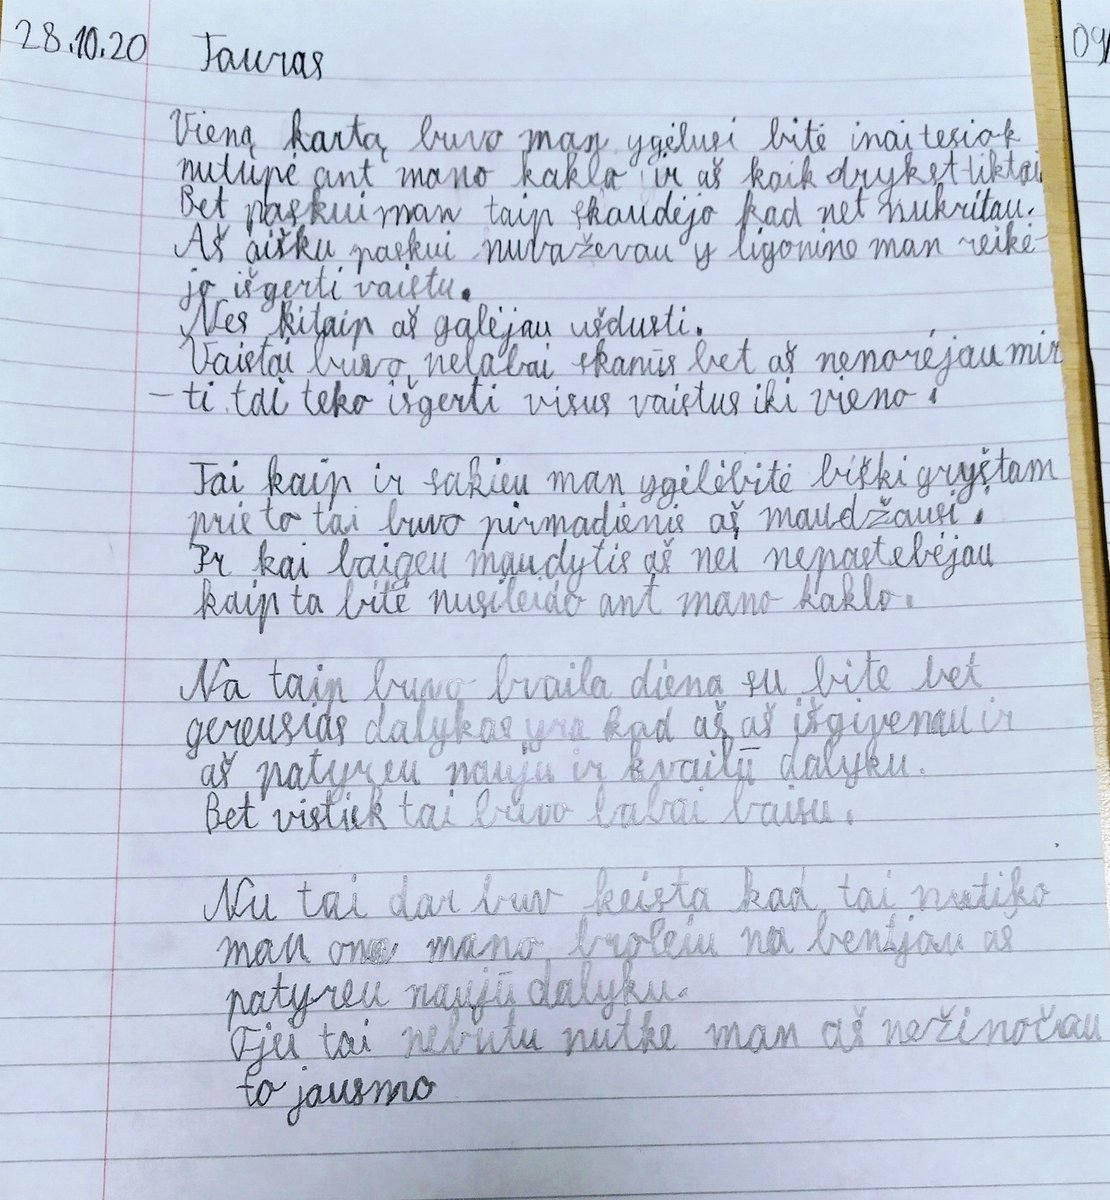 28.10.20 Tauras
09/
Vieną kartą buvo man ygėlusi bitė inai tesiok
nutupė ant mano kaklo ir aš kaik drykst-liktai
Bet paskui man taip skaudėjo kad net nukritau.
Aš aišku paskui nuvaževau y ligonino man reikė-
jo išgerti vaistu.
Nes kitaip aš galėjau ušdusti.
Vaistai buvo nelabai skanūs bet aš nenorėjau mir
-ti tai teko išgerti visus vaistus iki vieno.
Tai kaip ir sakieu man ygėlė bitė biški gryštam
prie to tai buvo pirmadienis aš maudžausi.
Ir kai baigeu maudytis aš nei nepastebėjau
kaip ta bitė nusileido ant mano kaklo.
Na taip buvo kvaila diena su bite bet
gereusias dalykas yra kad aš aš išgivenau ir
aš patyreu nauju ir kvailū dalyku.
Bet vistiek tai buvo labai baisu.
Nu tai dar buv keista kad tai nutiko
man one mano broleiu na bentjau aš
patyreu naujū dalyku.
Tjei tai nebutu nutke man aš nežinočau
to jausmo